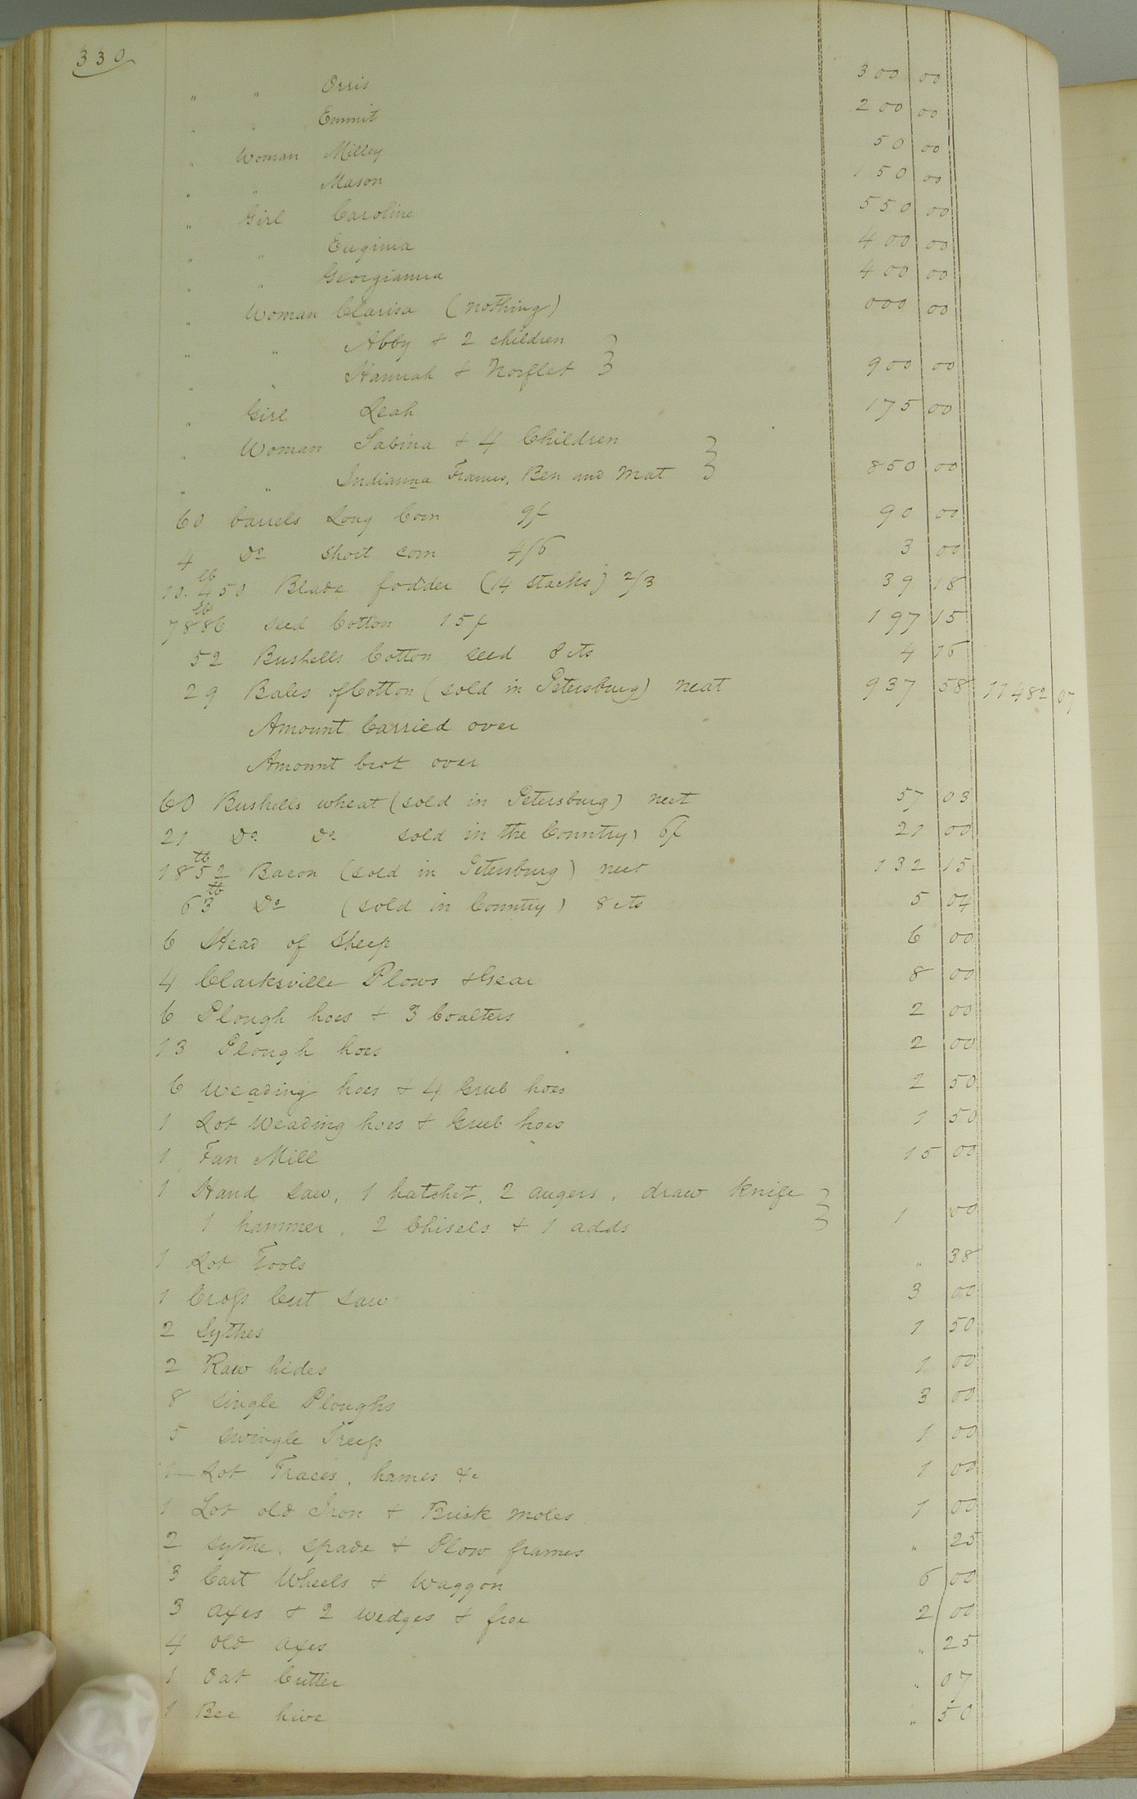 330
" " Orris 300 00
" " Emmit 200 00
" Woman Milley 50 00
" " Mason 150 00
" Girl Caroline 550 00
" " Euginia 400 00
" " Georgianna 400 00
" Woman Clarisa (nothing) 000 00
" " Abby & 2 children
" " Hannah & Norflet } 900 00
" Girl Leah 175 00
" Woman Sabina & 4 Children
" " Indianna Frances, Ben and Mat } 850 00
60 barrels Long Corn 9/ 90 00
4 Do short corn 4/6 3 00
10.450 lb Blade fodder (14 stacks) 2/3 39 18
7886 lb seed Cotton 15/ 197 15
52 Bushells Cotton seed 8 cts 4 16
29 Bales of Cotton (sold in Petersburg) neat 937 58 11482 07
Amount Carried over
Amount brot over
60 Bushells wheat (sold in Petersburg) neet 57 03
21 Do Do sold in the Country) 6/ 21 00
1852 lb Bacon (sold in Petersburg) neet 132 15
63 lb Do (sold in Country) 8 cts 5 04
6 Head of Sheep 6 00
4 Clarksville Plows & Gear 8 00
6 Plough hoes & 3 Coalters 2 00
13 Plough hoes 2 00
6 Weading hoes & 4 Grub hoes 2 50
1 Lot Weading hoes & Grub hoes 1 50
1 Fan Mill 15 00
1 Hand saw, 1 hatchet, 2 augers, draw knife
1 hammer, 2 Chisels & 1 adds } 1 00
1 Lot Tools " 38
1 Cross Cut saw 3 00
2 Sythes 1 50
2 Raw hides 1 00
8 single Ploughs 3 00
5 swingle Trees 1 00
1 Lot Traces, hames &c 1 00
1 Lot old Iron & Brick moles 1 00
2 sythe, spade & Plow frames " 25
3 Cart Wheels & Waggon 6 00
3 axes & 2 wedges & froe 2 00
4 old axes " 25
1 Oat Cutter " 07
1 Bee hive " 50